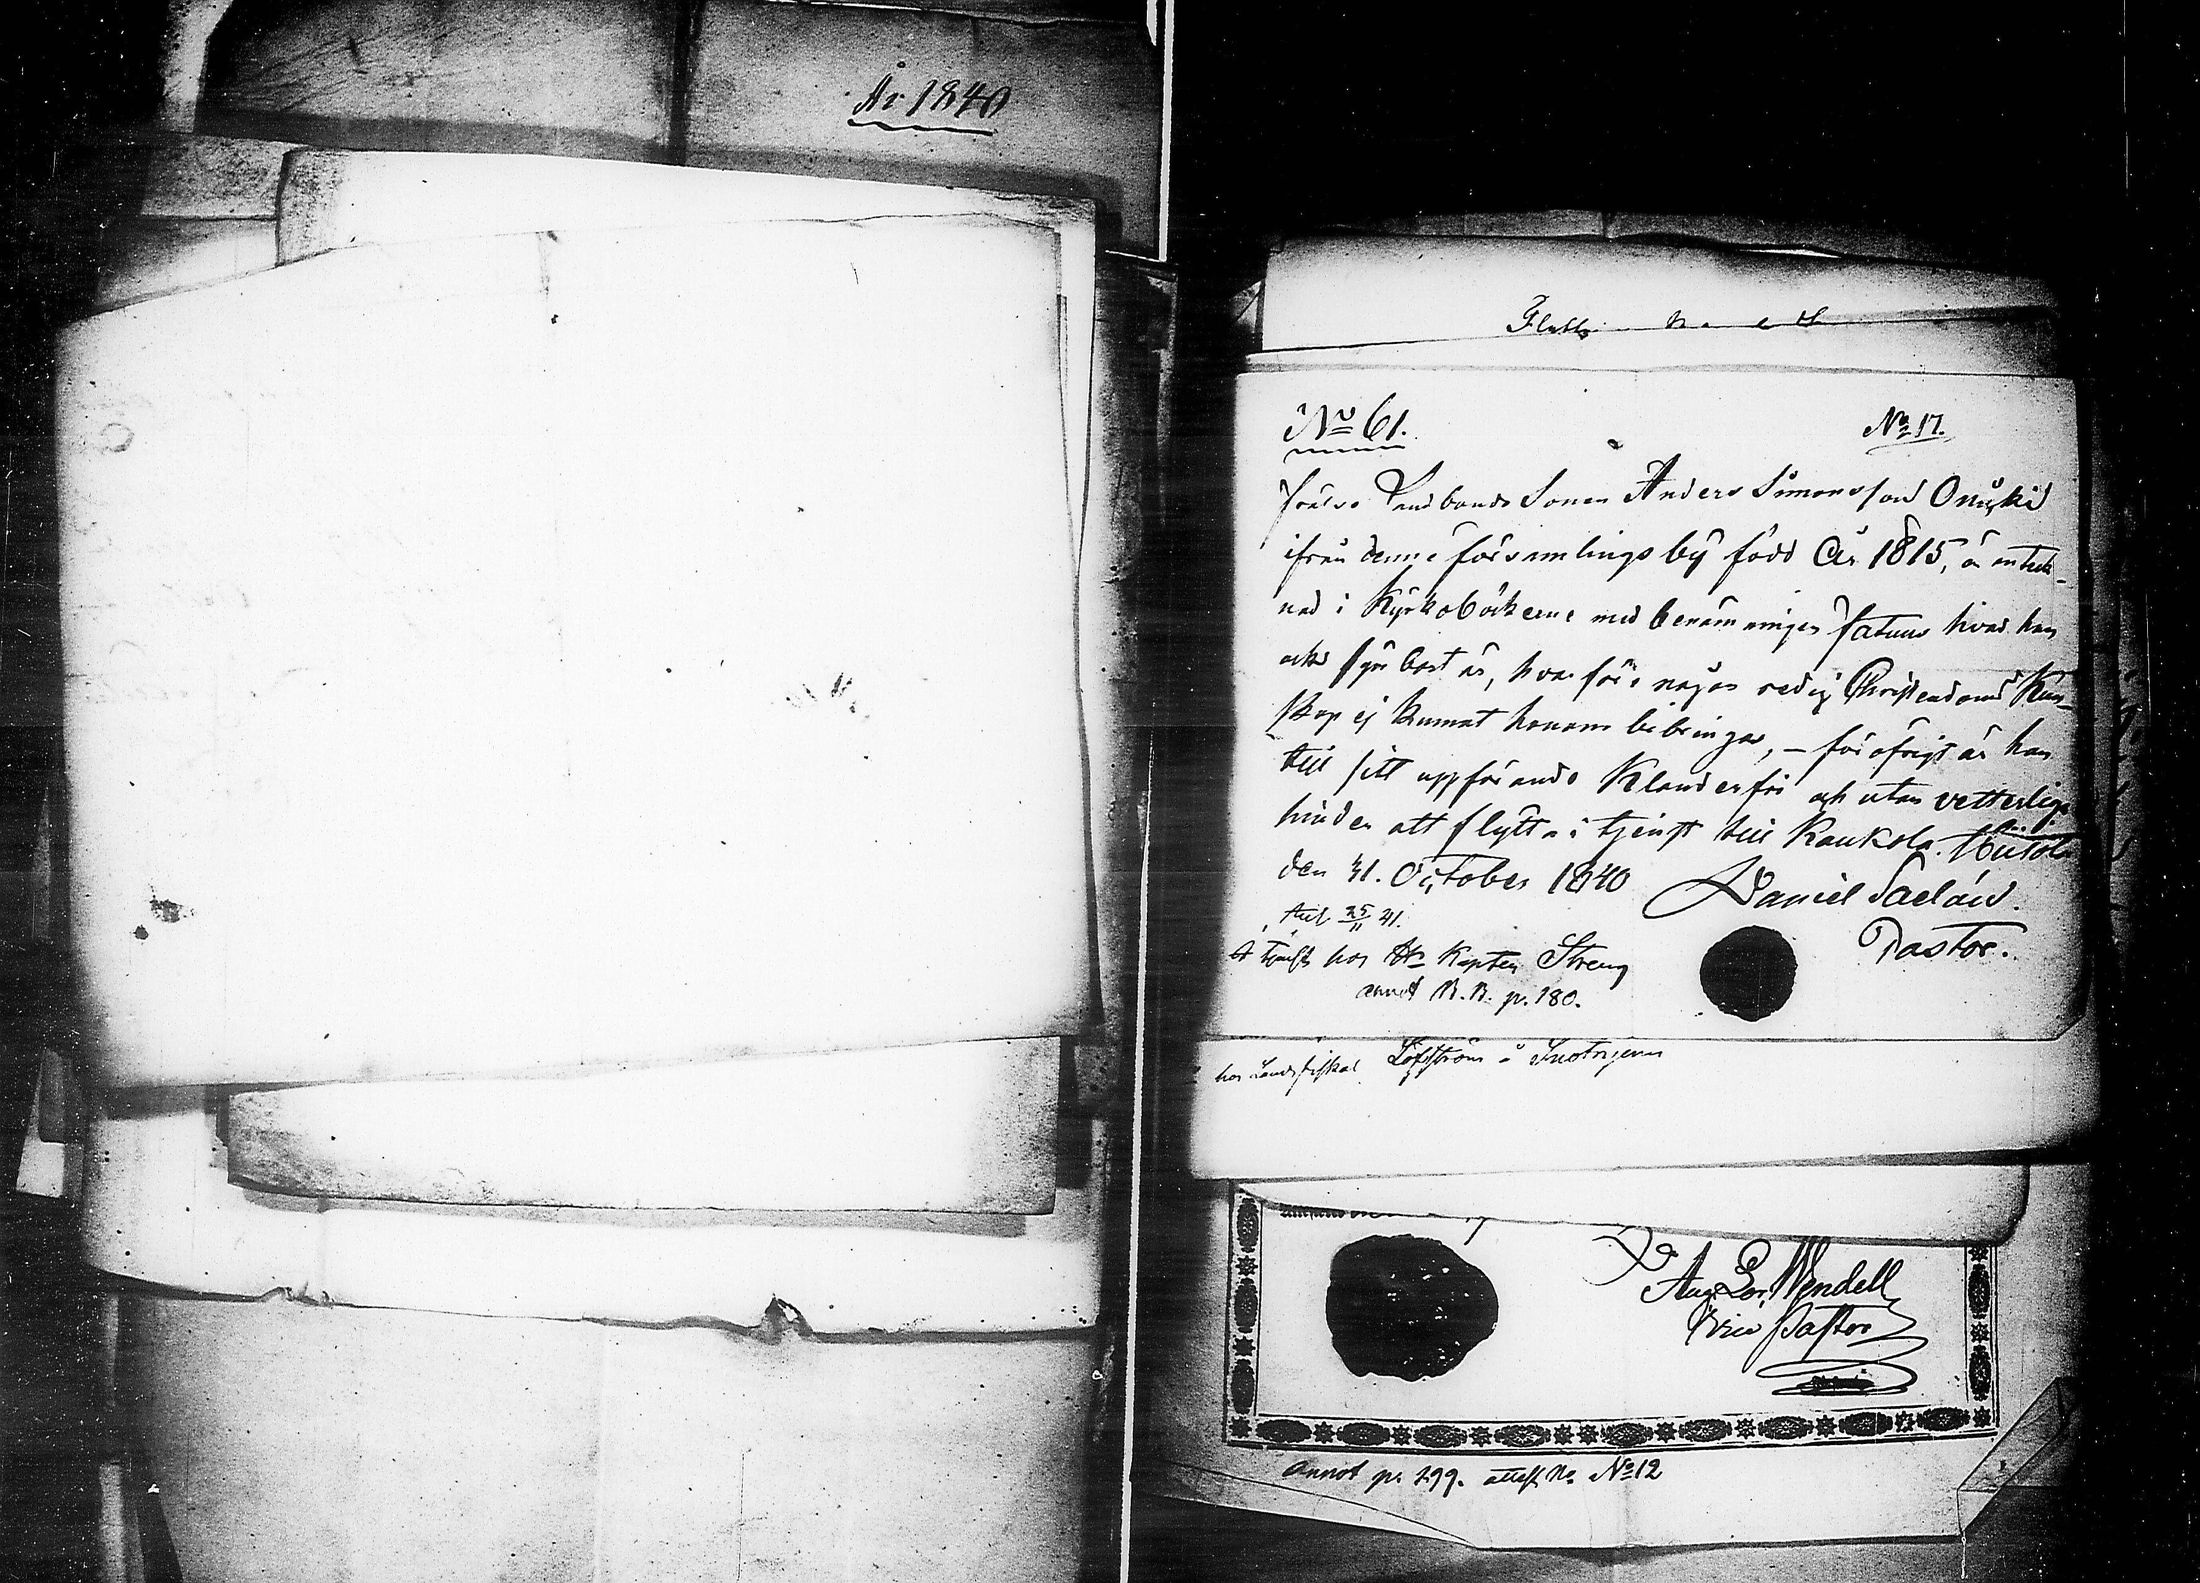 År 1840
No 61.
No 17.
Frälse Landbonde Sonen Anders Simonsson Onuski
ifrån denne församlings by född År 1815, är anteck-
nad i Kyrkoböckerne med benämningen fatuus hvad han
ock är, hvarföre någon redig Christendoms Kun-
skap ej kunnat honom bibringas, – för öfrigt är han
till sitt uppförande Klanderfri och utan vetterliga
hinder att flytta i tjenst till Kaukola. Hiitola
den 31. October 1840
Daniel Saelán.
Pastor.
25/11 41.
hos Hr Kapten Streng
annot K.B. p. 180.
hos Landsfiskal Löfström
Aug. Lor. Wendell
Vice Pastor
annot p. 299. attest No 12